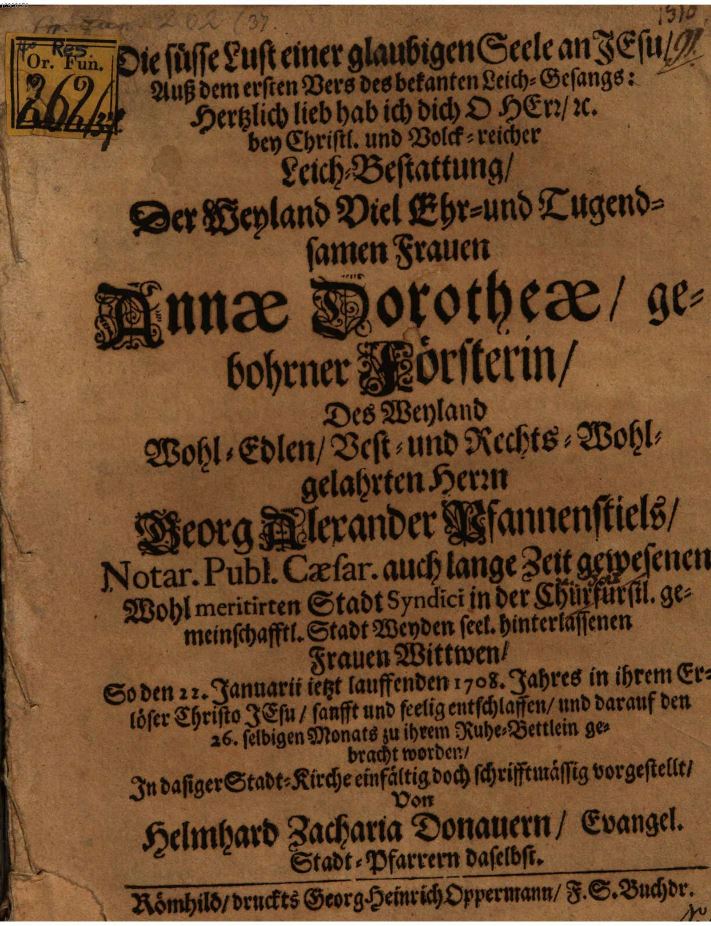 Res
Or. Fun.
262/37
Die süsse Lust einer glaubigen Seele an JEsu/
Auß dem ersten Vers des bekanten Leich-Gesangs:
Hertzlich lieb hab ich dich O HErr/ ꝛc.
bey Christl. und Volck-reicher
Leich-Bestattung/
Der Weyland Viel Ehr-und Tugend-
samen Frauen
Annæ Dorotheæ/ ge-
bohrner Försterin/
Des Weyland
Wohl-Edlen/ Vest-und Rechts-Wohl-
gelahrten Herrn
Georg Alexander Pfannenstiels/
Notar. Publ. Cæsar. auch lange Zeit gewesenen
Wohl meritirten Stadt Syndici in der Churfürstl. ge-
meinschafftl. Stadt Weyden seel. hinterlassenen
Frauen Wittwen/
So den 22. Januarii ietzt lauffenden 1708. Jahres in ihrem Er-
löser Christo JEsu/ sanfft und seelig entschlaffen/ und darauf den
26. selbigen Monats zu ihrem Ruhe-Bettlein ge-
bracht worden/
In dasiger Stadt-Kirche einfältig doch schrifftmässig vorgestellt/
Von
Helmhard Zacharia Donauern/ Evangel.
Stadt-Pfarrern daselbst.
Römhild/ druckts Georg-Heinrich Oppermann/ F. S. Buchdr.